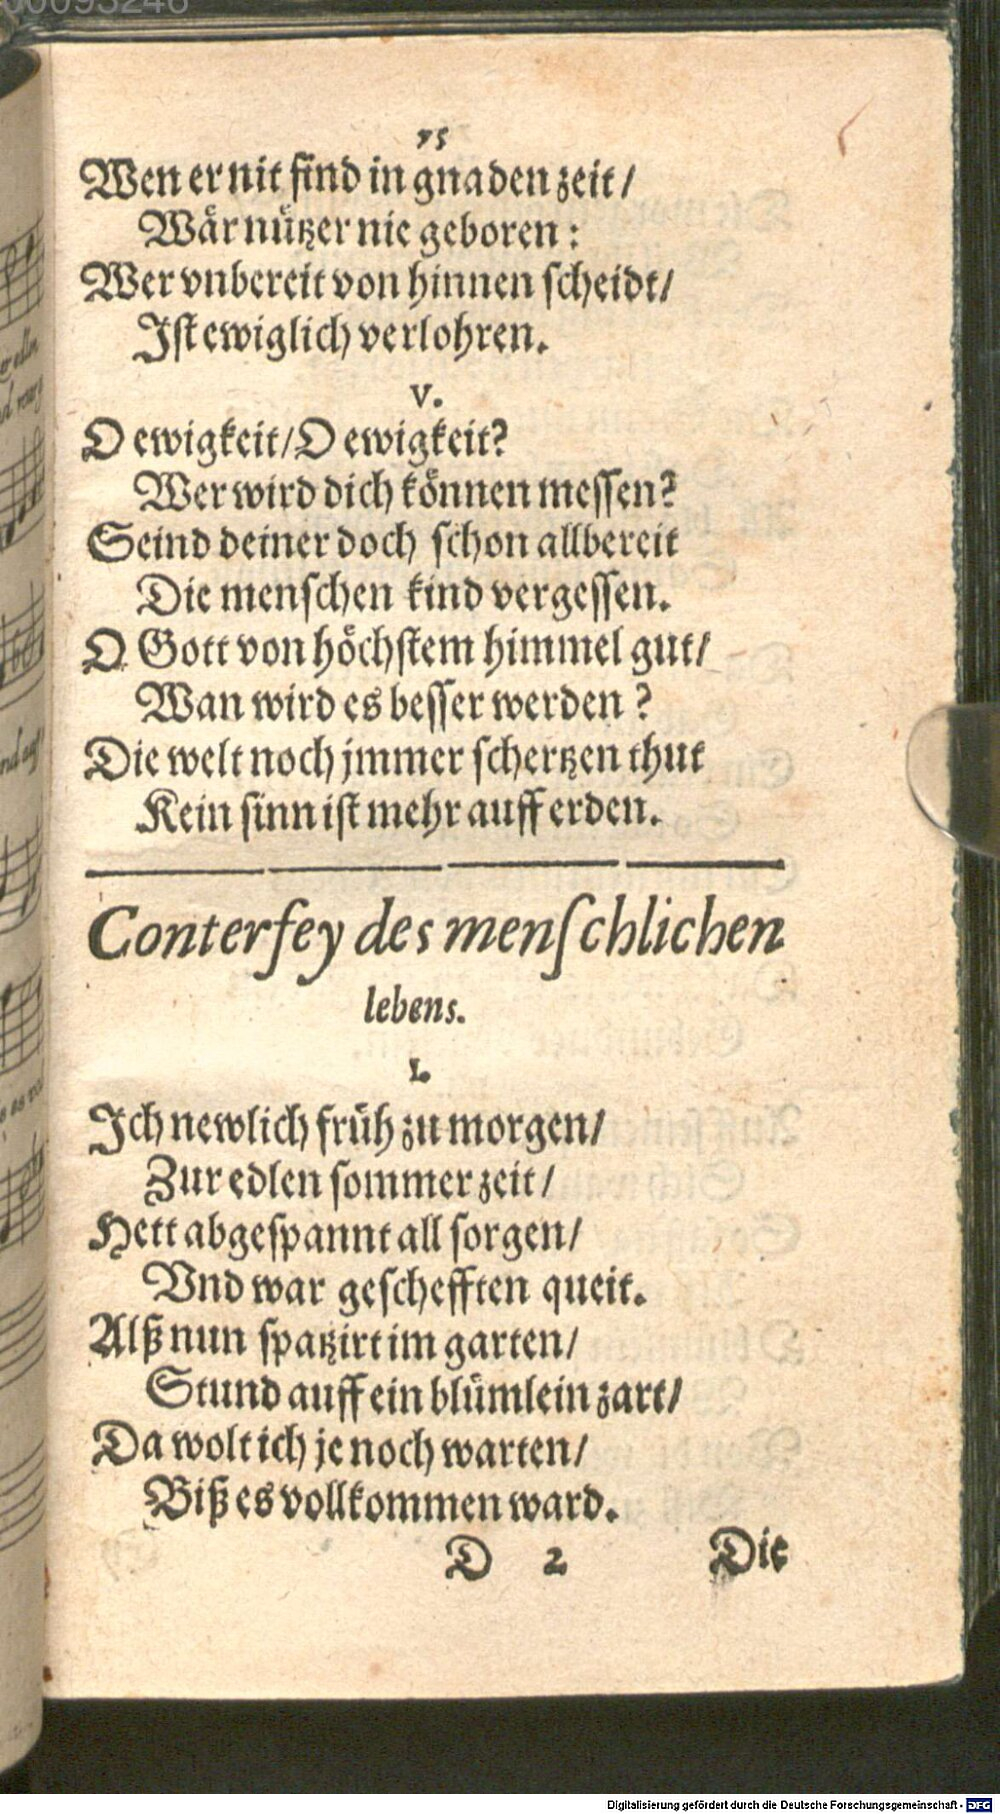 Wen er nit find in gnaden zeit /
Wär nützer nie geboren :
Wer vnbereit von hinnen scheidt /
Ist ewiglich verlohren.
V.
O ewigkeit / O ewigkeit?
Wer wird dich können messen?
Seind deiner doch schon allbereit
Die menschen kind vergessen.
O Gott von höchstem himmel gut /
Wan wird es besser werden ?
Die welt noch jmmer schertzen thut
Kein sinn ist mehr auff erden.
Conterfey des menschlichen
lebens.
I.
Ich newlich früh zu morgen /
Zur edlen sommer zeit /
Hett abgespannt all sorgen /
Vnd war geschefften queit.
Alß nun spatzirt im garten /
Stund auff ein blümlein zart /
Da wolt ich je noch warten /
Biß es vollkommen ward.
D 2 Die
Digitalisierung gefördert durch die Deutsche Forschungsgemeinschaft - DFG